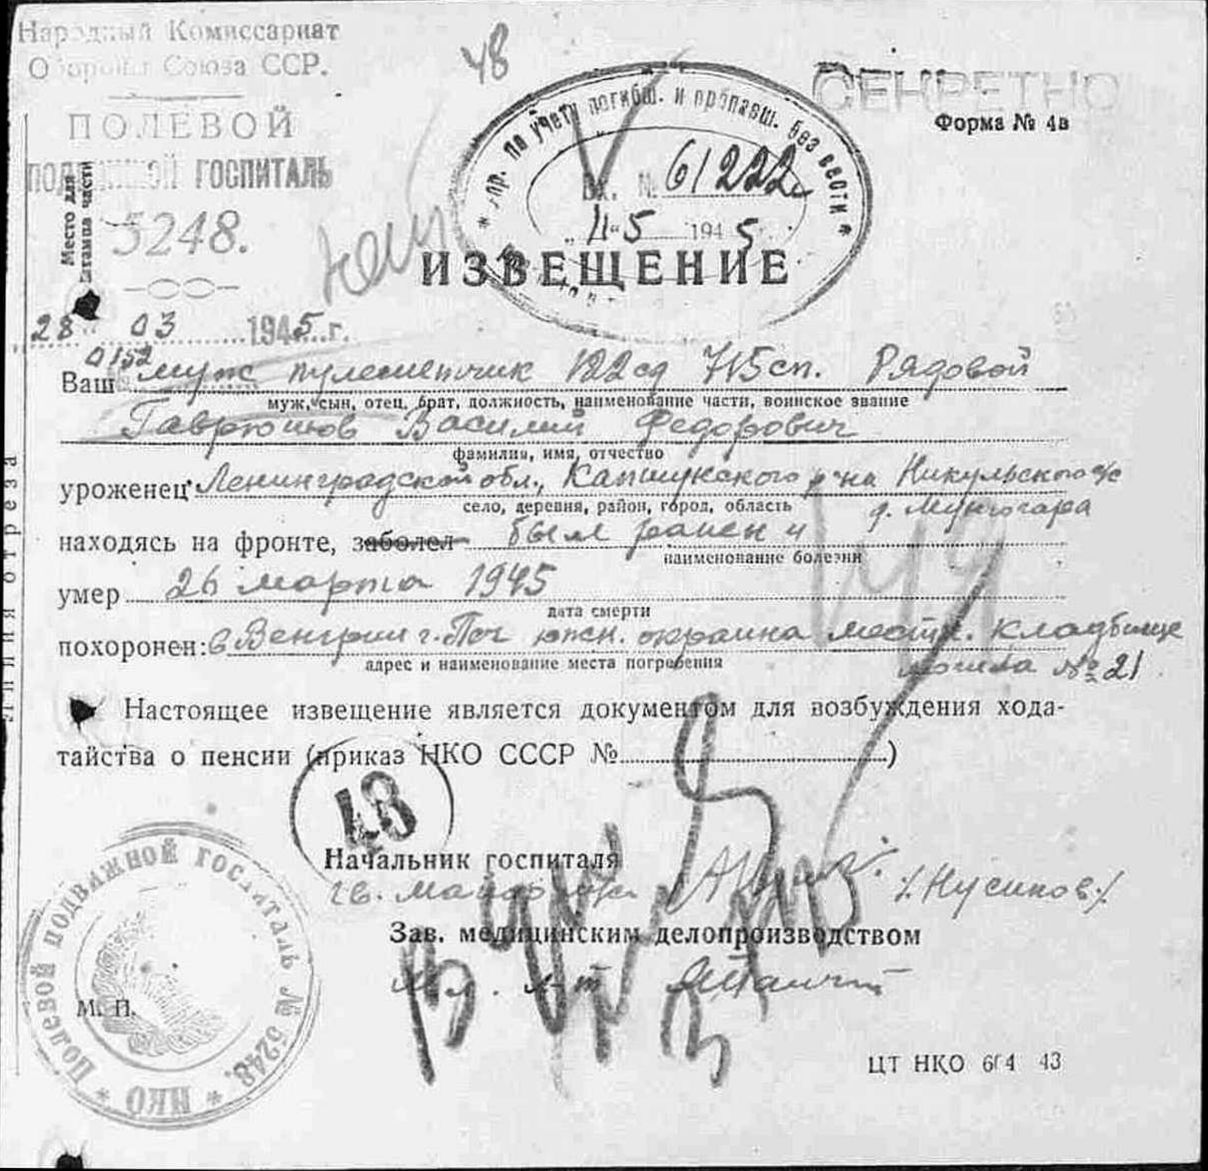 Народный Комиссариат
Обороны Союза ССР.
48
СЕКРЕТНО
Форма № 4в
ПОЛЕВОЙ
ПОДВИЖНОЙ ГОСПИТАЛЬ
5248.
Место для
штампа части
по учету погибш. и пропавш. без вести
Вх. № 61222с
"11" 5 1945 г.
ИЗВЕЩЕНИЕ
28 03 1945 г.
0152
Ваш муж пулеметчик 122 сд 715 сп. Рядовой
муж, сын, отец, брат, должность, наименование части, воинское звание
Гаврюшов Василий Федорович
фамилия, имя, отчество
уроженец Ленинградской обл., Капшинского р-на Никульского с/с
село, деревня, район, город, область
д. Мунгогара
находясь на фронте, заболел был ранен и
наименование болезни
умер 26 марта 1945
дата смерти
похоронен: в Венгрии г. Печ южн. окраина местн. кладбище
адрес и наименование места погребения
могила № 21
Линия отреза
Настоящее извещение является документом для возбуждения хода-
тайства о пенсии (приказ НКО СССР № )
48
Начальник госпиталя
гв. майор м/с /Нусинов/
Зав. медицинским делопроизводством
мл. л-т
М. П.
Полевой подвижной госпиталь № 5248. * НКО *
ЦТ НКО 604 43